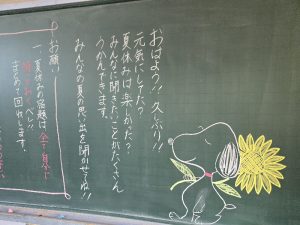 おはよう!! 久しぶり!!
元気にしてた?
夏休みは楽しかった?
みんなに聞きたいことがたくさん
うかんできます。
みんなの夏の思い出を聞かせてね!!
お願い
一、夏休みの宿題は全て
まとめて回収します。